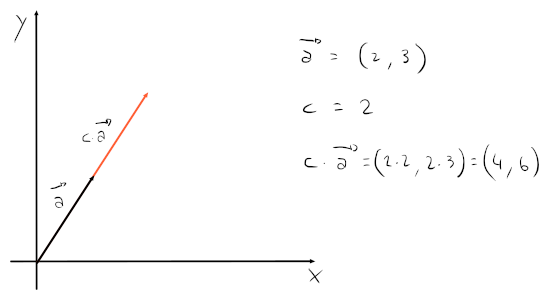 y
c·a⃗
a⃗
x
a⃗ = (2, 3)
c = 2
c · a⃗ = (2·2, 2·3) = (4, 6)